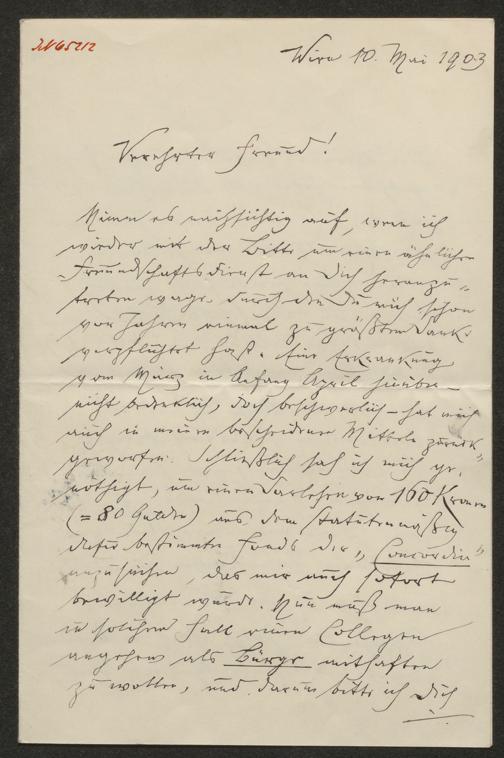 JN 65212
Wien 10. Mai 1903
Verehrter Freund!
Nimm es nachsichtig auf, wenn ich
wieder mit der Bitte um einen ähnlichen
Freundschaftsdienst an Dich heranzu-
treten wage, durch den Du mich schon
vor Jahren einmal zu größtem Dank
verpflichtet hast. Eine Erkrankung
vom März in Anfang April hinüber –
nicht bedenklich, doch beschwerlich – hat mich
auch in meinen bescheidenen Mitteln zurück-
geworfen. Schließlich sah ich mich ge-
nöthigt, um einen Darlehen von 160 Kronen
(= 80 Gulden) aus dem statutenmäßig
dafür bestimmten Fonds der „Concordia“
anzusuchen, das mir auch sofort
bewilligt wurde. Nun muß man
in solchem Fall einen Collegen
angehen als Bürge mithaften
zu wollen, und darum bitte ich Dich